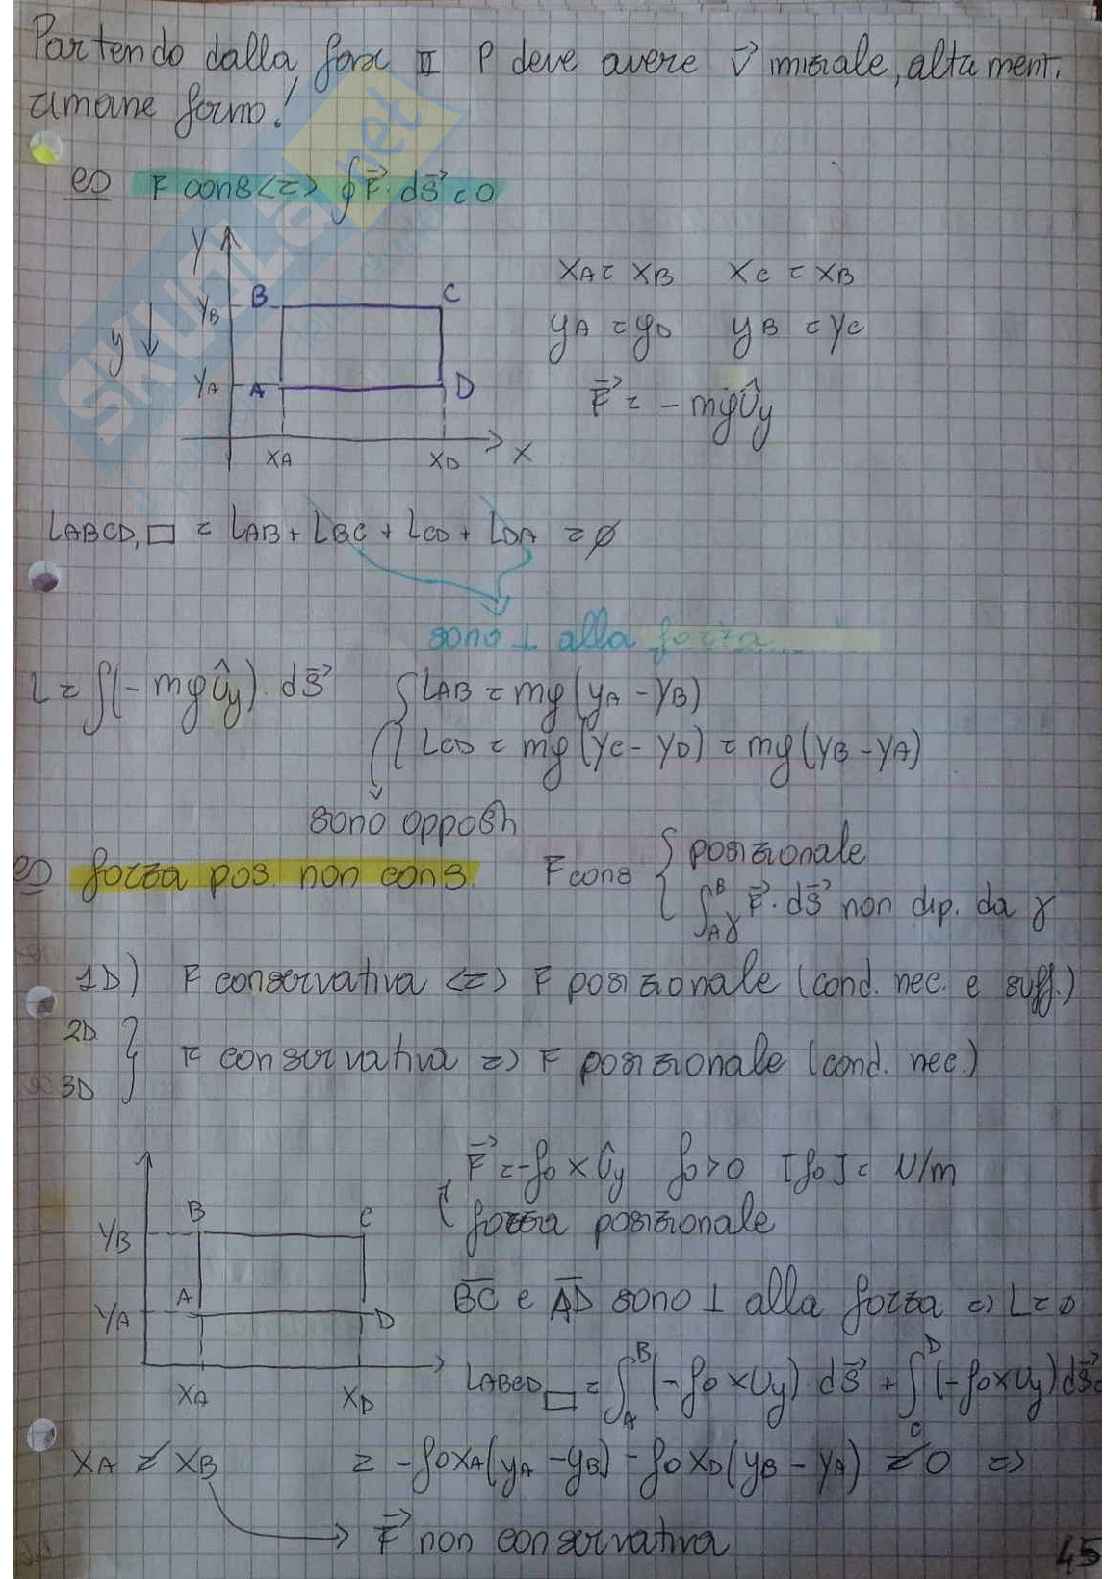 Partendo dalla fase II P deve avere v⃗ iniziale, altrimenti
rimane fermo!
es F cons <=> ∮F⃗·dS⃗ = 0
Y
B C
YB
g
YA A D
XA XD X
XA = XB XC = XB
yA = yD yB = yC
F⃗ = - mgÛy
LABCD,□ = LAB + LBC + LCD + LDA = ∅
sono ⊥ alla forza
L = ∫(- mgÛy)·dS⃗
{ LAB = mg(yA - yB)
LCD = mg(yC - yD) = mg(yB - yA)
sono opposti
es forza pos. non cons.
Fcons { posizionale
∫Aγ^B F⃗·dS⃗ non dip. da γ
1D) F conservativa <=> F posizionale (cond. nec. e suff.)
2D
3D } F conservativa => F posizionale (cond. nec.)
F⃗ = -f0 x Ûy f0 > 0 [f0] = N/m
forza posizionale
B C
YB
A D
YA
XA XD
BC e AD sono ⊥ alla forza => L = 0
LABCD □ = ∫A^B (-f0 x Uy)·dS⃗ + ∫C^D (-f0 x Uy)dS⃗ =
XA ≠ XB
= -f0 xA(yA - yB) - f0 xD(yB - yA) ≠ 0 =>
F⃗ non conservativa
45
SKUOLA.net